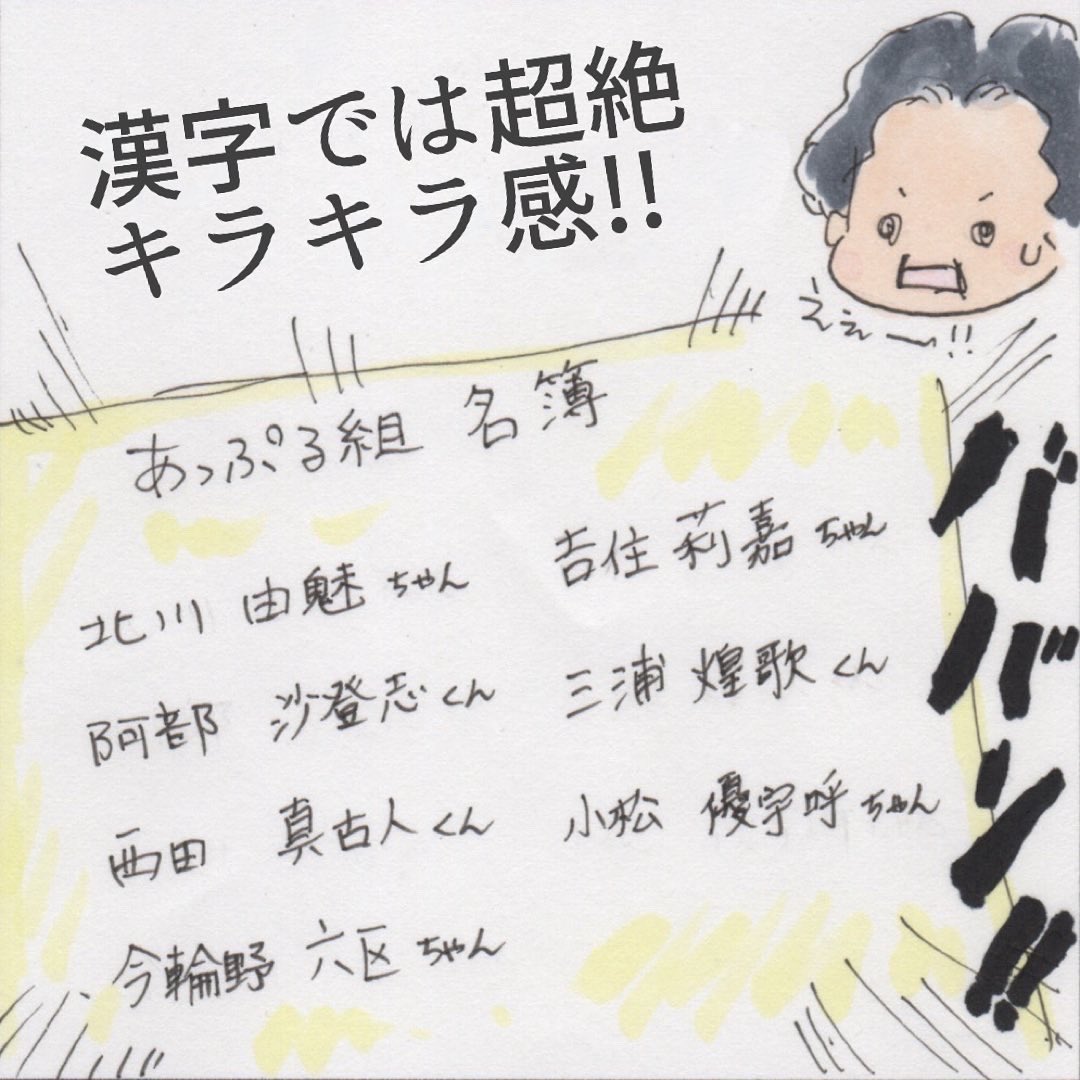 漢字では超絶
キラキラ感!!
えぇー!!
あっぷる組 名簿
北川 由魅ちゃん
吉住 莉嘉ちゃん
阿部 沙登志くん
三浦 煌歌くん
西田 真古人くん
小松 優宇呼ちゃん
今輪野 六区ちゃん
ババン!!